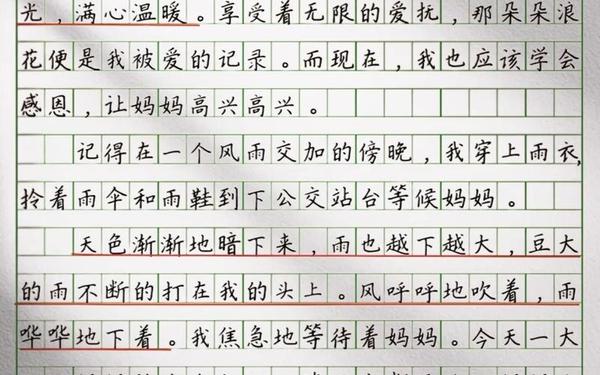 光，满心温暖。享受着无限的爱扰，那朵朵浪
花便是我被爱的记录。而现在，我也应该学会
感恩，让妈妈高兴高兴。
记得在一个风雨交加的傍晚，我穿上雨衣，
拎着雨伞和雨鞋到下公交站台等候妈妈。
天色渐渐地暗下来，雨也越下越大，豆大
的雨不断的打在我的头上。风呼呼地吹着，雨
哗哗地下着。我焦急地等待着妈妈。今天一大